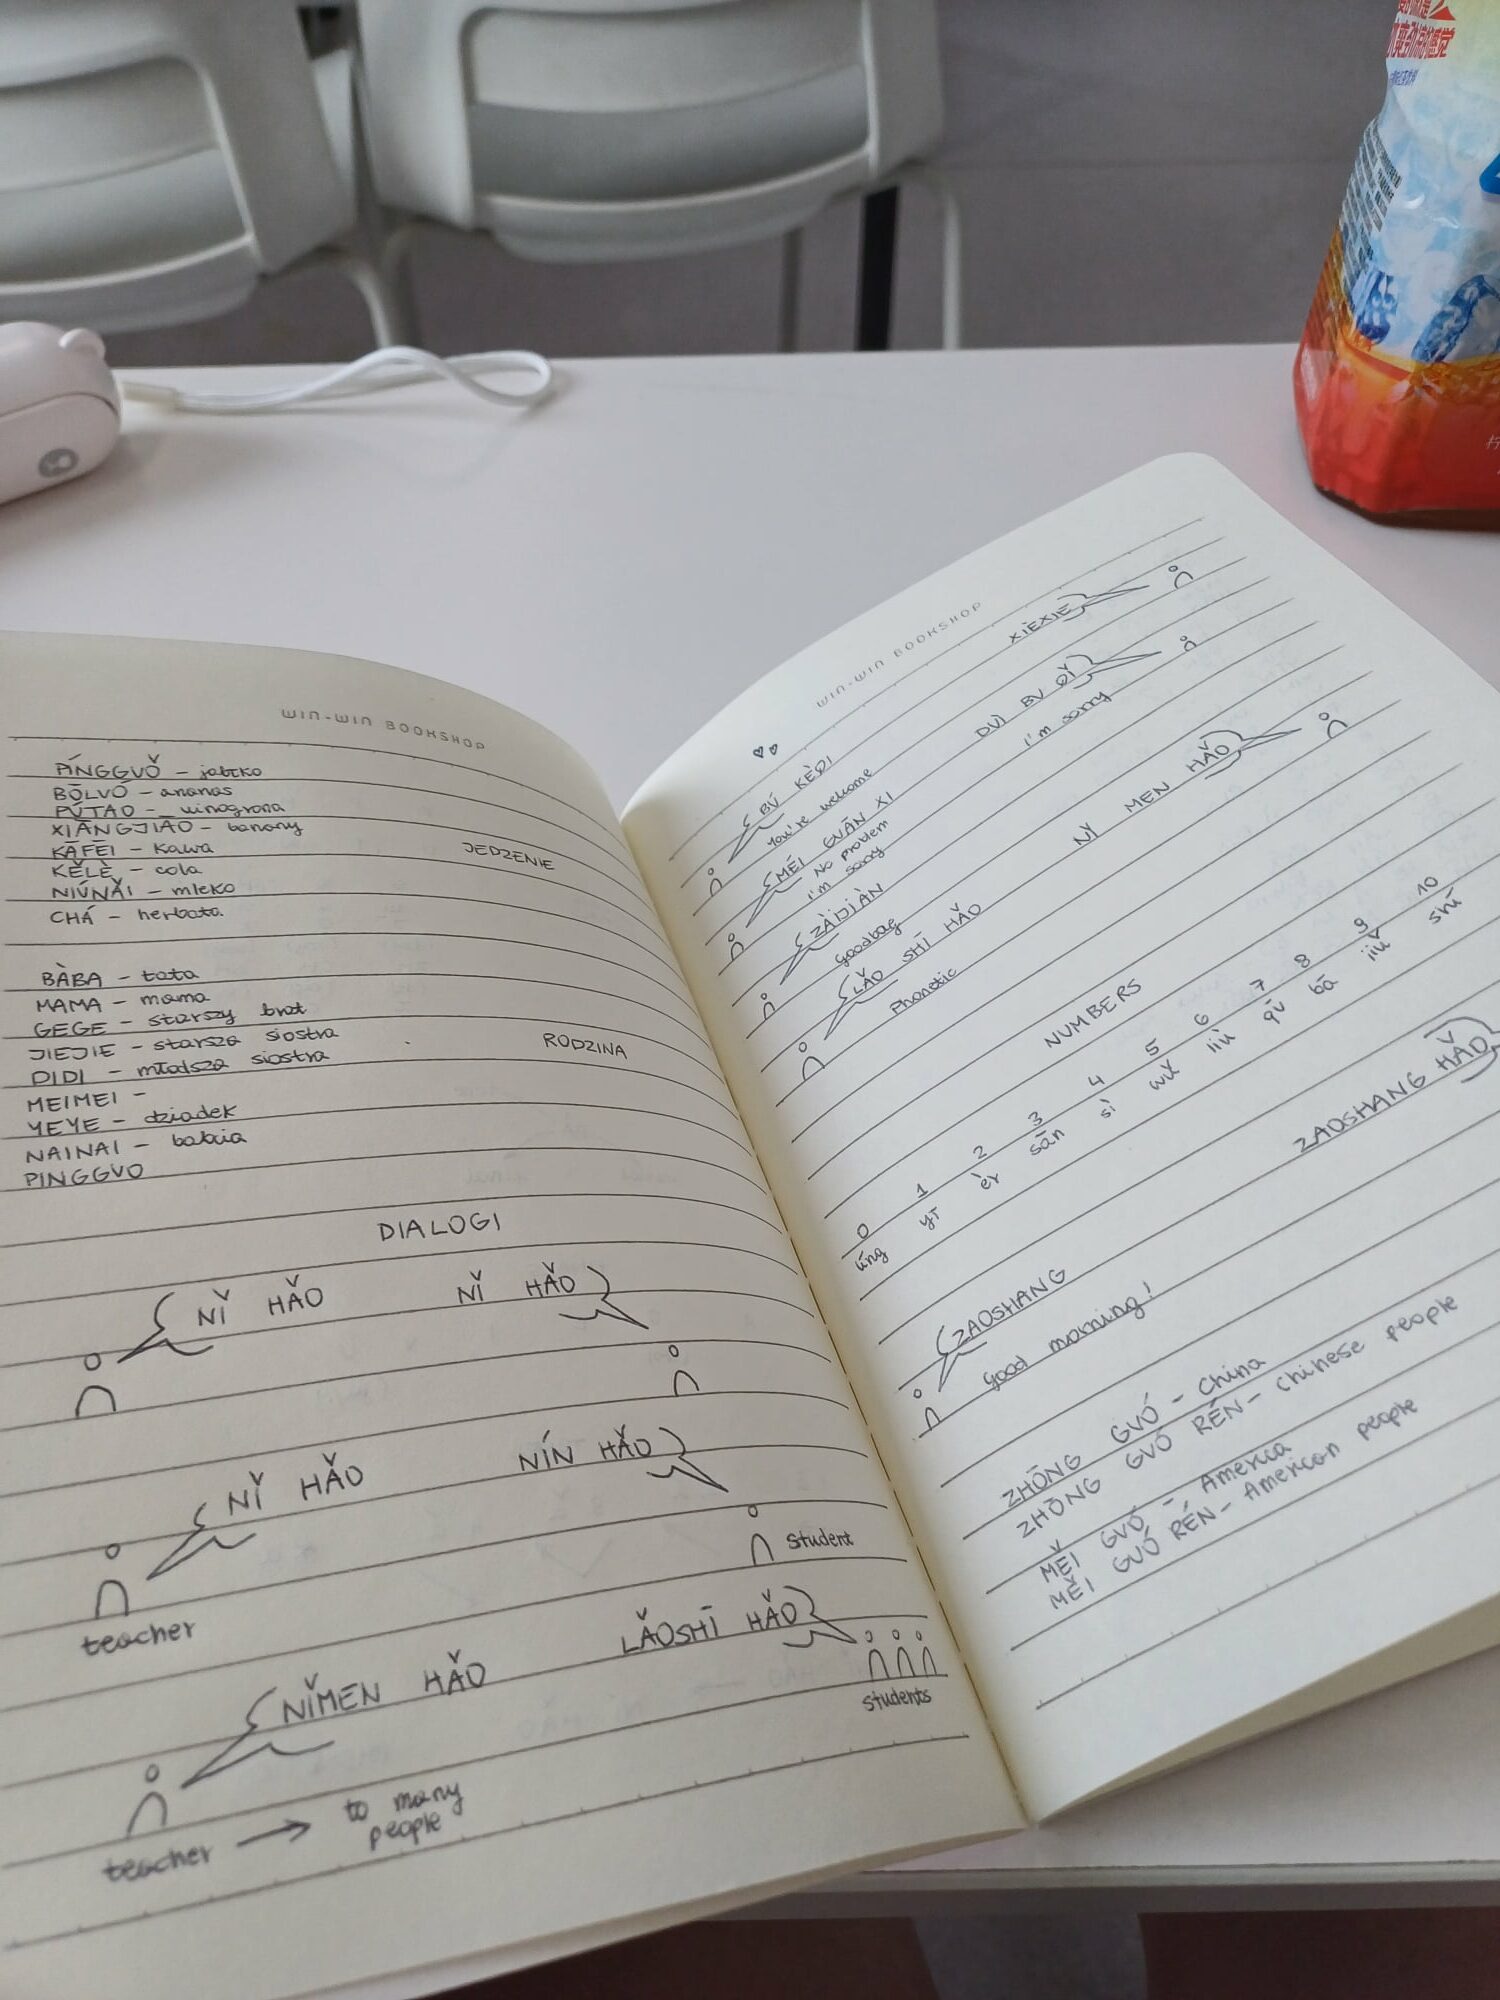 WIN-WIN BOOKSHOP
PÍNGGVǑ – jabłko
BŌLVÓ – ananas
PÚTAO – winogrona
XIĀNGJIĀO – banany
KĀFĒI – kawa
KĚLÈ – cola
NIÚNǍI – mleko
CHÁ – herbata
JEDZENIE
BÀBA – tata
MAMA – mama
GEGE – starszy brat
JIEJIE – starsza siostra
DIDI – młodsza siostra
MEIMEI –
YEYE – dziadek
NAINAI – babcia
PINGGVO
RODZINA
DIALOGI
NǏ HǍO NǏ HǍO
NǏ HǍO NÍN HǍO
teacher student
NǏMEN HǍO LǍOSHĪ HǍO
teacher → to many people
students
WIN-WIN BOOKSHOP
XIÈXIE
BÚ KÈQI
You're welcome
DVÌ BV QǏ
I'm sorry
MÉI GVĀN XI
No problem
I'm sorry
ZÀIJIÀN
NǏ MEN HǍO
LǍO SHĪ HǍO
Phonetic
NUMBERS
0 1 2 3 4 5 6 7 8 9 10
líng yī èr sān sì wǔ liù qī bā jiǔ shí
ZAOSHANG HǍO
ZAOSHANG
Good morning!
ZHŌNG GVÓ – China
ZHŌNG GVÓ RÉN – Chinese people
MĚI GVÓ – America
MĚI GVÓ RÉN – American people